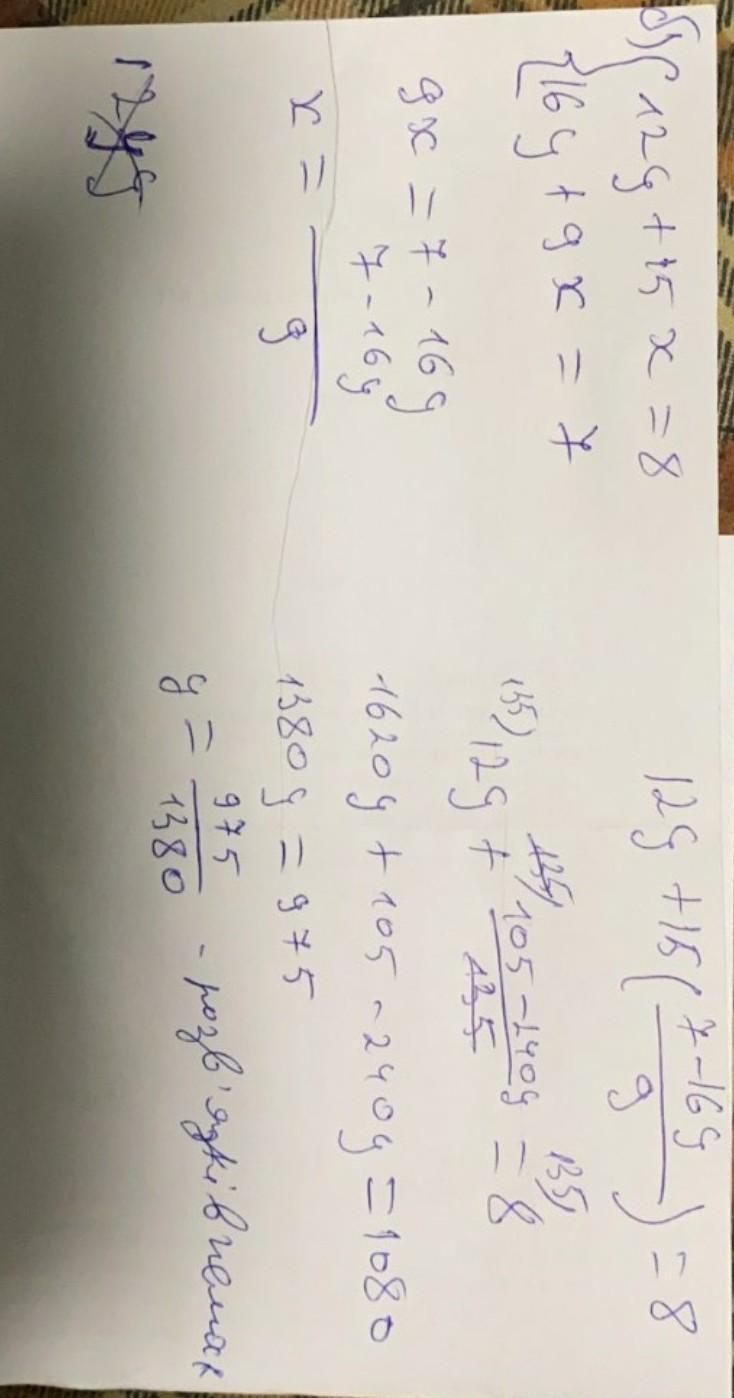 б) { 12y + 15x = 8
{ 16y + 9x = 7
9x = 7 - 16y
x = \frac{7 - 16y}{9}
12y + 15(\frac{7 - 16y}{9}) = 8
135) 12y + \frac{105 - 240y}{135} = 8 135)
1620y + 105 - 240y = 1080
1380y = 975
y = \frac{975}{1380} - розв'язків немає